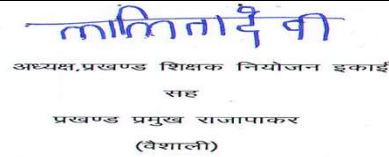 ललितादेवी
अध्यक्ष,प्रखण्ड शिक्षक नियोजन इकाई
सह
प्रखण्ड प्रमुख राजापाकर
(वैशाली)